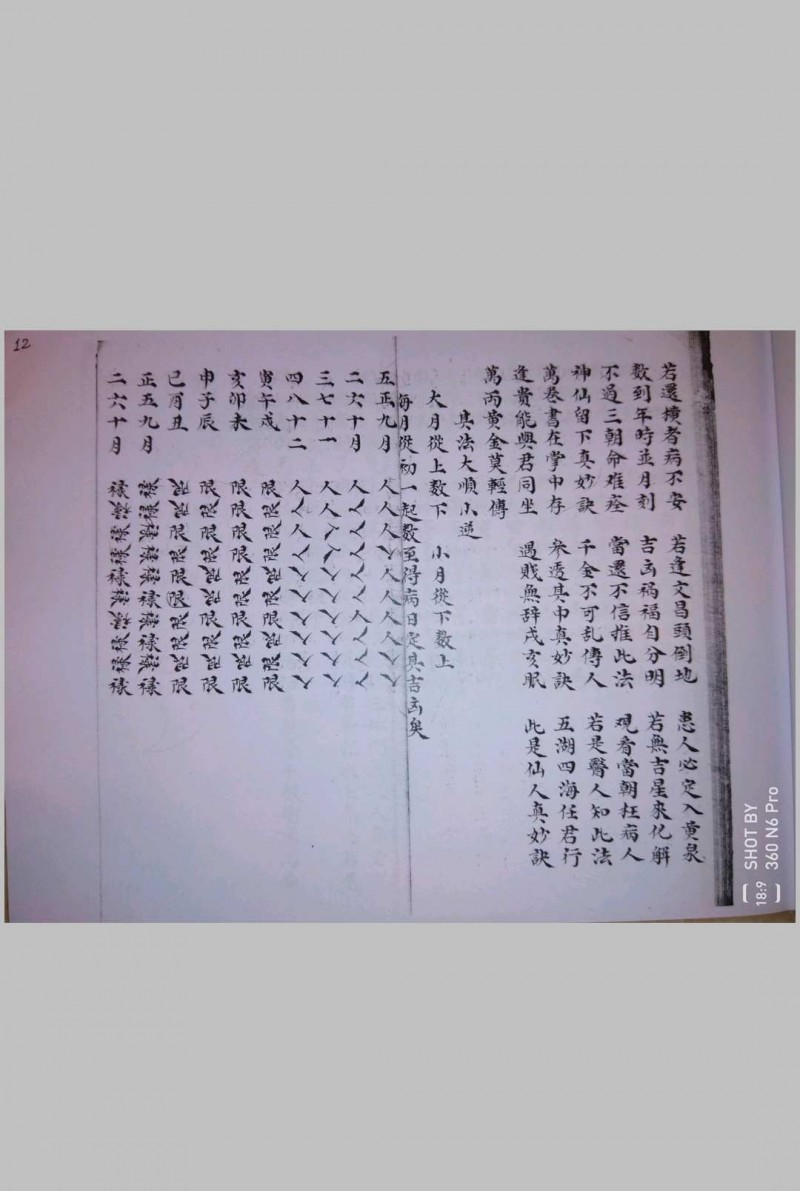 12
若還横者病不安 若逢文昌頭倒地 患人必定入黄泉
数到年時並月刻 吉凶祸福自分明 若無吉星來化解
不過三朝命难痊 當還不信推此法 观看當朝枉病人
神仙留下真妙訣 千金不可乱傳人 若是醫人知此法
萬巻書在掌中存 叅透其中真妙訣 五湖四海任君行
逢貴能與君同坐 遇贱無辞戌亥眠 此是仙人真妙訣
萬両黄金莫輕傳
其法大順小逆
大月從上数下 小月從下数上
每月從初一起数至得病日定其吉凶矣
五正九月 人人人人人人人人人人
二六十月 人人人人人人人人人人
三七十一 人人人人人人人人人人
四八十二 人人人人人人人人人人
寅午戌 限限限限限限限限限限
亥卯未 限限限限限限限限限限
申子辰 限限限限限限限限限限
巳酉丑 限限限限限限限限限限
正五九月 禄禄禄禄禄禄禄禄禄禄
二六十月 禄禄禄禄禄禄禄禄禄禄
SHOT BY
360 N6 Pro
18:9